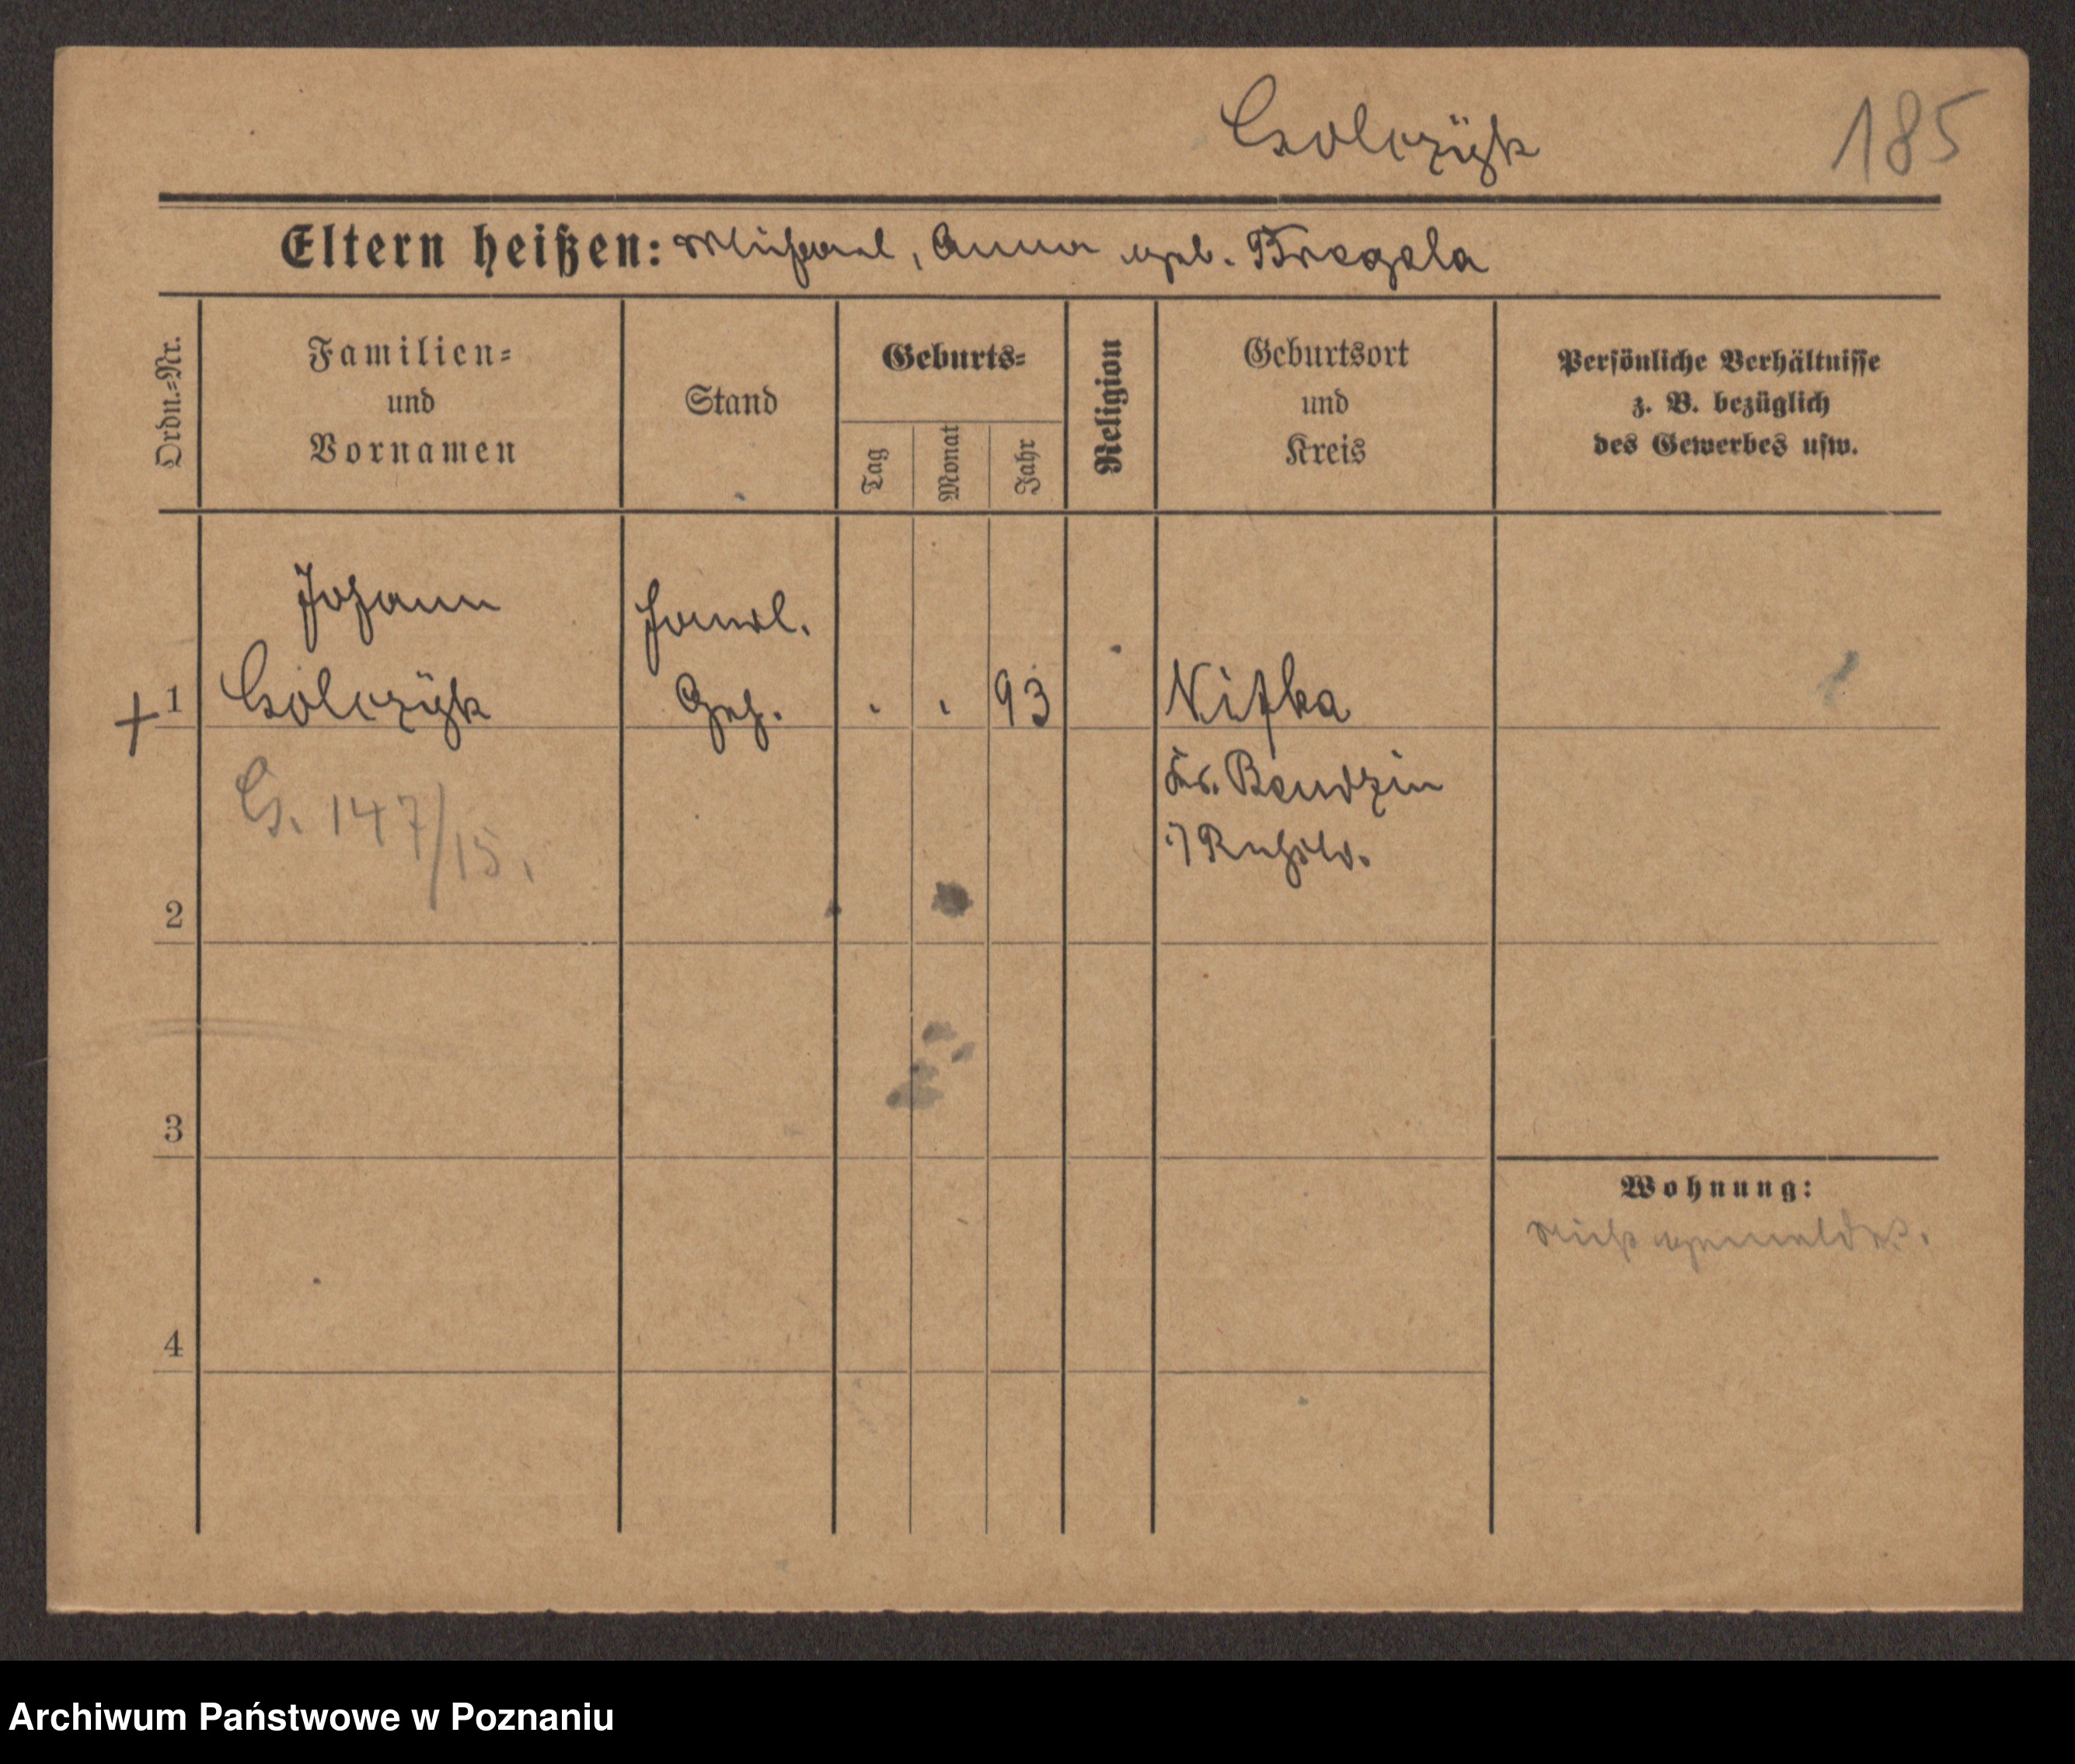 Golczÿk
185
Eltern heißen: Michael, Anna geb. Bregela
Ordn.-Nr.
Familien-
und
Vornamen
Stand
Geburts-
Tag
Monat
Jahr
Religion
Geburtsort
und
Kreis
Persönliche Verhältnisse
z. B. bezüglich
des Gewerbes usw.
Johann
Golczÿk
Handl.
Geh.
+ 1
. . 93
Nifka
Kr. Bendzin
i/ Rußld.
G. 147/15.
2
3
Wohnung:
nicht gemeldet.
4
Archiwum Państwowe w Poznaniu